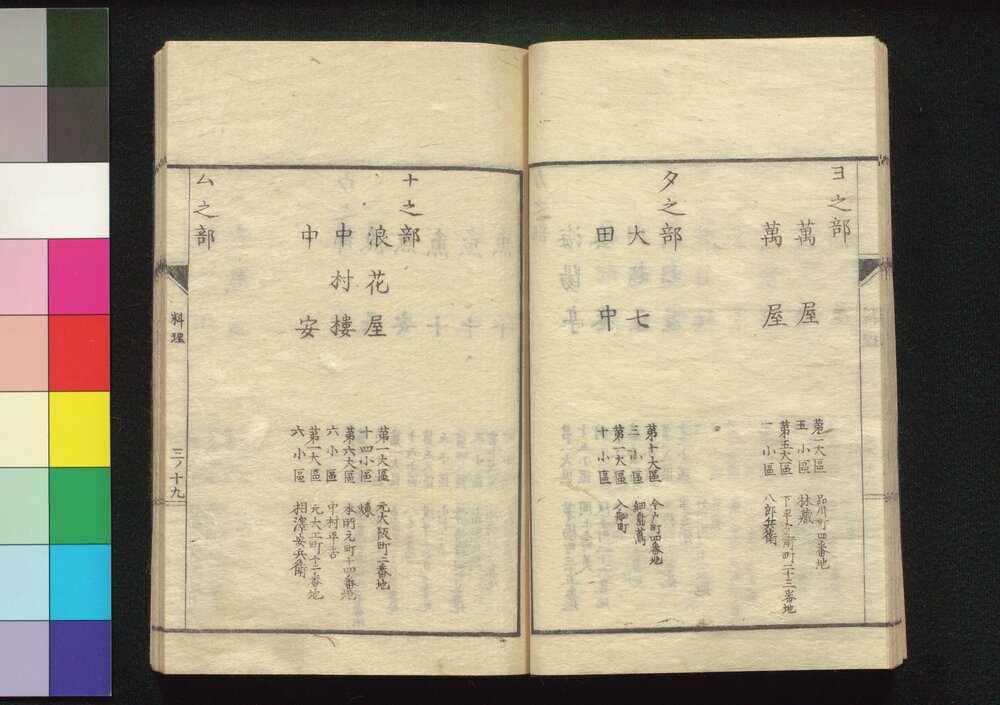 ヨ之部
萬屋
第一大區
五小區
品川町四番地
林藏
萬屋
第五大區
一小區
下平右衛町二十三番地
八郎兵衛
タ之部
大七
第十大區
三小區
今戸町四番地
細島萬
田中
第一大區
十小區
入舩町
ナ之部
浪花屋
第一大區
十四小區
元大阪町二番地
中村樓
第六大區
六小區
本所元町十四番地
中村平吉
中安
第一大區
六小區
元大工町十二番地
相澤安兵衛
ム之部
料理
三ノ十九